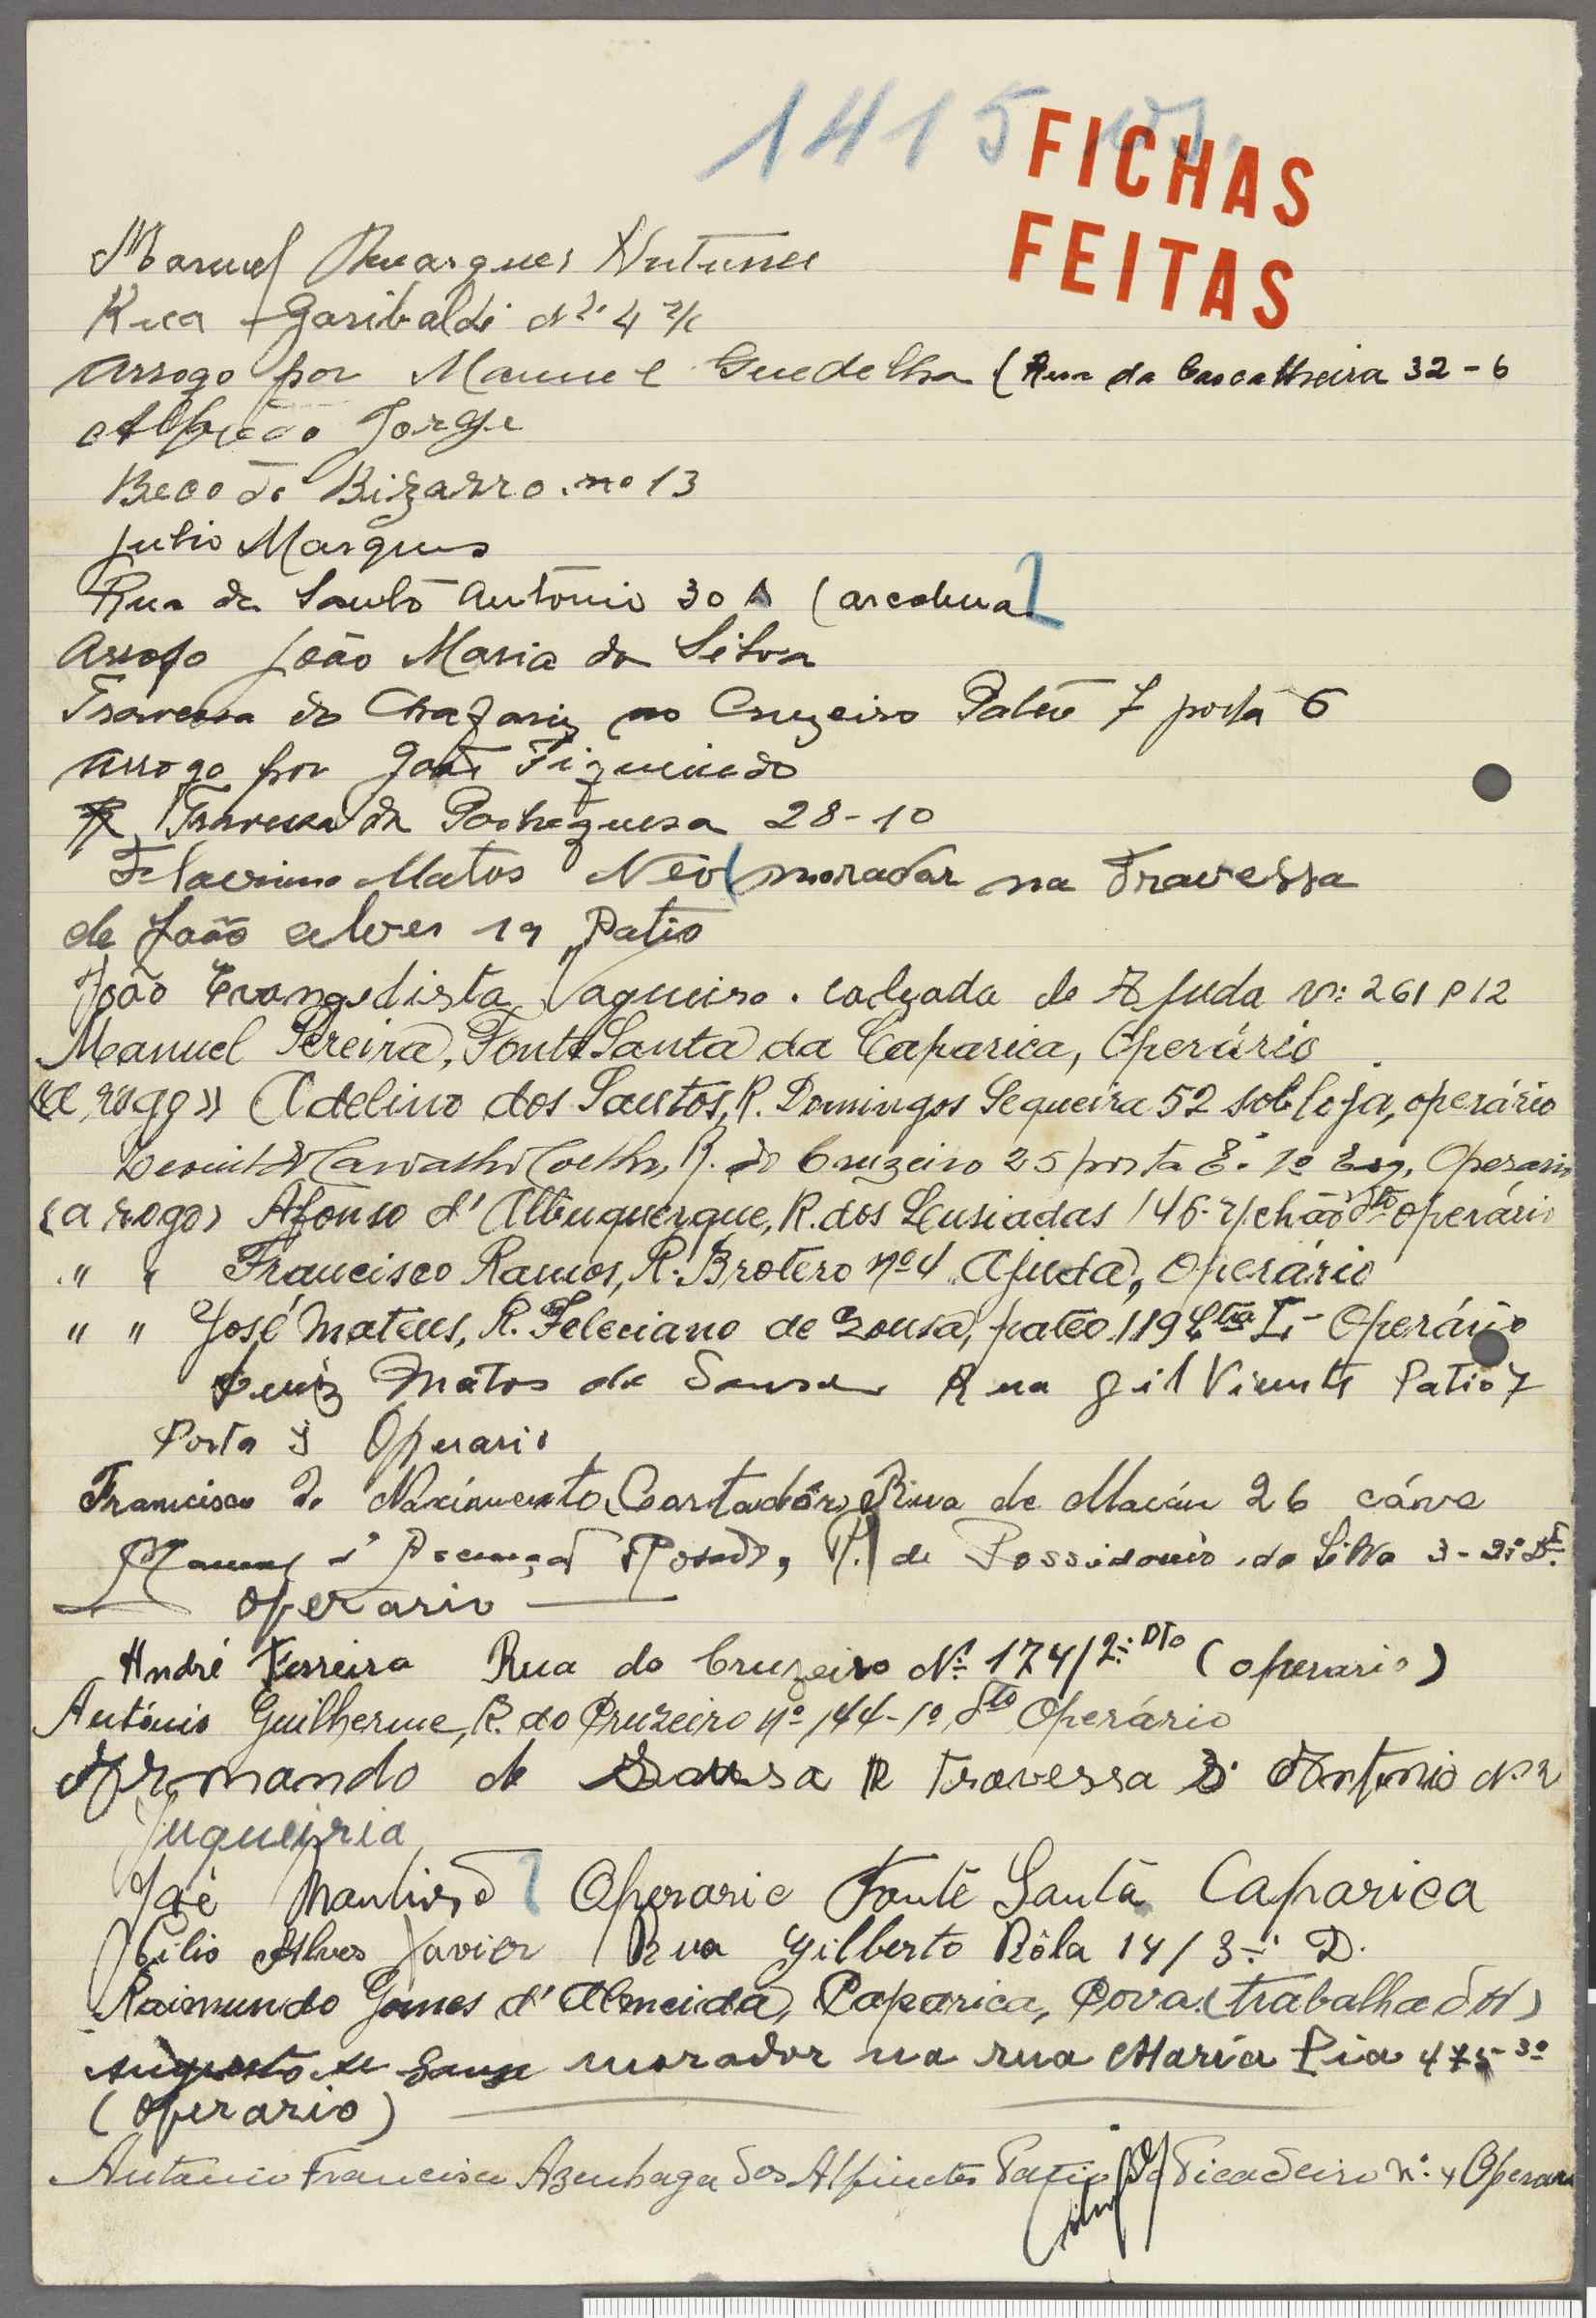 1415
FICHAS
FEITAS
Manuel Marques Antunes
Rua Garibaldi Nº 4 r/c
Arrogo por Manuel Guedelha (Rua da Cascalheira 32-6
Alfredo Jorge
Beco do Bizarro no 13
Julio Marques
Rua de Santo António 30 A (
Arrogo João Maria da Silva
Travessa do Chafariz ao Cruzeiro Patéo 7 porta 6
Arrogo por João Figueiredo
Travessa da 28-10
Matos morador na Travessa
de João alves 19 Patio
João Evangelista Vaqueiro. calçada de Ajuda nº: 261 P 12
Manuel Pereira, Fonte Santa da Caparica, Operário
«a rogo» Adelino dos Santos, R. Domingos Sequeira 52 sob loja, operário
Carvalho Coelho, R. do Cruzeiro 25 porta 8. 1º Esq, Operario
(a rogo) Afonso d'Albuquerque, R. dos Lusiadas 146-r/chão dto operário
" " Francisco Ramos, R. Brotero nº4 Ajuda, Operário
" " José Mateus, R. Feleciano de Sousa, patéo 119 L- Operário
Luiz Matos de Sousa Rua gil Vicente Patio 7
Porta 3 Operario
Francisco do Nascimento, Cortador, Rua de Macáu 26 cáve
Manuel d' R. de Possidonio da Silva 3-2º Dt.
operario
André Ferreira Rua do Cruzeiro Nº 174/2º Dto (operario)
António Guilherme, R. do Cruzeiro nº 144-1º dto Operário
Armando de Sousa R Travessa D. Antonio Nº 2
Juqueiria
José Operario Fonte Santa Caparica
Júlio Alves Xavier Rua Gilberto Róla 14/3º D.
Raimundo Gomes d'Almeida, Caparica, Cova (trabalhador)
Augusto de Sousa morador na rua Maria Pia 475-3º
(operario)
Antonio Francisco Azenhaga dos Alfinetes Patio do Picadeiro nº 4 Operario